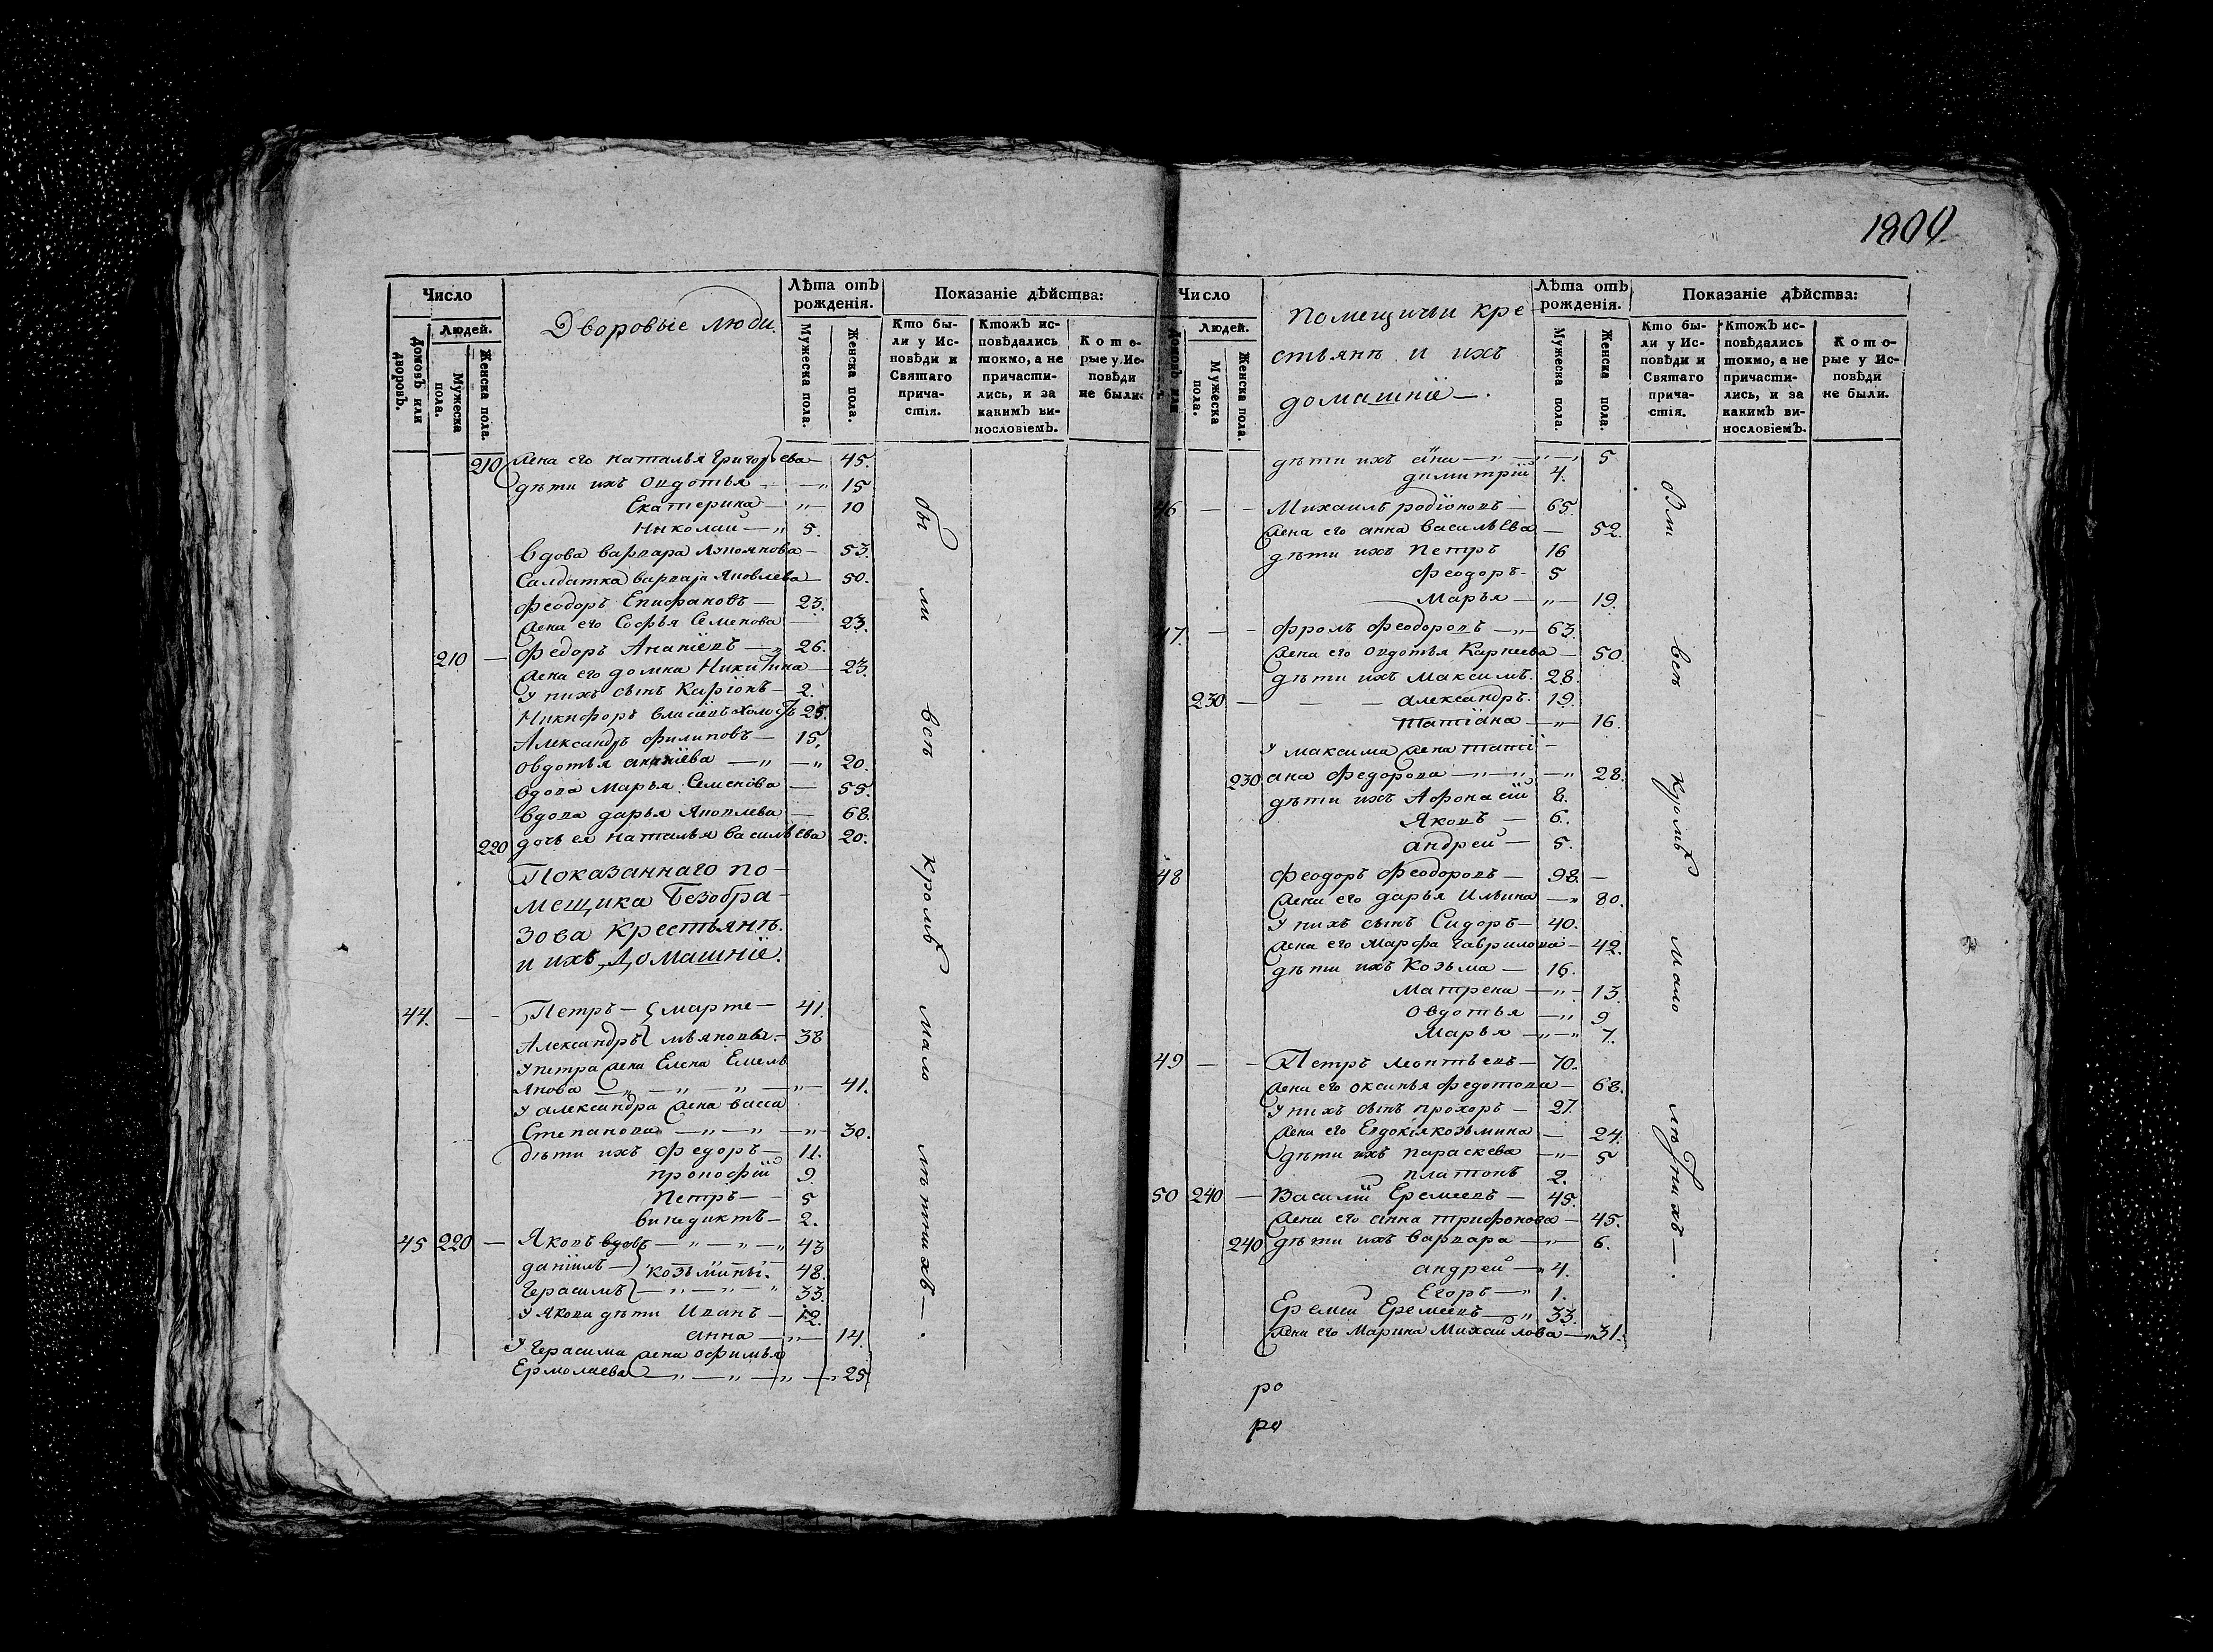 1800
Число
Людей.
Домовъ или дворовъ.
Мужеска пола.
Женска пола.
Дворовые люди.
Лѣта отъ рожденія.
Мужеска пола.
Женска пола.
Показаніе дѣйства:
Кто были у Исповѣди и Святаго причастія.
Ктожъ исповѣдались токмо, а не причастились, и за какимъ винословіемъ.
Которые у Исповѣди не были.
210 жена его наталья григорьева — 45.
дѣти ихъ овдотья — „ 15
Екатерина — „ — 10
Николай — „ 5.
вдова варвара — 53.
Салдатка варвара Яковлева — 50.
Феодоръ Епифановъ — 23.
жена его Софья Семенова — 23.
210 — Федоръ Ананіевъ — „ 26.
жена его домна Никитина — 23.
у нихъ сынъ Каріонъ — 2.
Никифоръ власіевъ холостъ 25.
Александръ филиповъ — 15.
овдотья ананіева — „ — „ 20.
вдова Марья Семенова — 55.
вдова дарья Яковлева — 68.
220 дочь ея наталья васильева 20.
Показаннаго по-
мещика Безобра-
зова крестьянъ.
и ихъ домашніе.
44. — — Петръ — } марте — 41.
Александръ } мьяновы. — 38
у петра жена Елена Емелья
янова — „ — „ — „ — „ — 41.
у александра жена васса
Степанова — „ — „ — „ — 30.
дѣти ихъ федоръ — 11.
прокофій 9.
Петръ — 5
винедиктъ — 2.
45 220 — Яковъ вдовъ — „ — „ — „ 43
даніилъ — } козьмины. 48.
Герасимъ } — „ — „ — „ 33.
у Якова дѣти Иванъ — 12.
анна — „ — 14.
у Герасима жена офимья
Ермолаева — „ — „ — „ — „ 25
бы ли всѣ кромѣ мало лѣтнихъ — .
Число
Людей.
Домовъ или
Мужеска пола.
Женска пола.
помещичьи кре-
стьянъ и ихъ
домашніе — .
Лѣта отъ рожденія.
Мужеска пола.
Женска пола.
Показаніе дѣйства:
Кто были у Исповѣди и Святаго причастія.
Ктожъ исповѣдались токмо, а не причастились, и за какимъ винословіемъ.
Которые у Исповѣди не были.
дѣти ихъ анна — „ — „ — „ 5
димитрій 4.
46 — — Михаилъ родіоновъ — 65.
жена его анна васильева — 52.
дѣти ихъ Петръ 16
феодоръ — 5
Марья — „ — 19.
47. — — фролъ феодоровъ — „ — 63.
жена его овдотья Карнеева — 50.
дѣти ихъ Максимъ. 28.
230 — — — александръ. 19.
татіана — „ — 16.
у максима жена таті-
230 ана федорова — „ — „ — „ 28.
дѣти ихъ Афонасій 8.
Яковъ — 6.
андрей — 5.
48 феодоръ феодоровъ — 98. —
жена его дарья Ильина — „ 80.
у нихъ сынъ Сидоръ — 40.
жена его Марфа гаврилова — 42.
дѣти ихъ Козьма — 16.
Матрена — „ — 13.
Овдотья — „ 9
Марья — „ — „ 7.
49 — — Петръ леонтьевъ — 70.
жена его оксинья федотова — 68.
у нихъ сынъ прохоръ — 27.
жена его Евдокія козьмина — 24.
дѣти ихъ параскева — „ — 5
платонъ 2.
50 240 — Василій Еремеевъ — 45.
жена его анна трифонова — 45.
240 дѣти ихъ варвара — „ — 6.
андрей — „ 4.
Егоръ — „ 1.
Еремей Еремеевъ — „ 33.
жена его Марина Михайлова — „ 31.
всѣ кромѣ мало лѣтнихъ — .
ро
ро